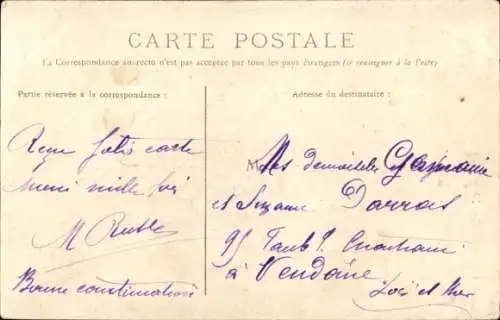 CARTE POSTALE
La Correspondance au recto n'est pas acceptée par tous les pays étrangers (se renseigner à la Poste)
Partie réservée à la correspondance :
Adresse du destinataire :
Reçu jolie carte
merci mille fois
M
Bonne continuation
Mes demoiselles Germaine
et Suzanne Darras
95 Faub.g Chartrain
à Vendôme
Loir et Cher